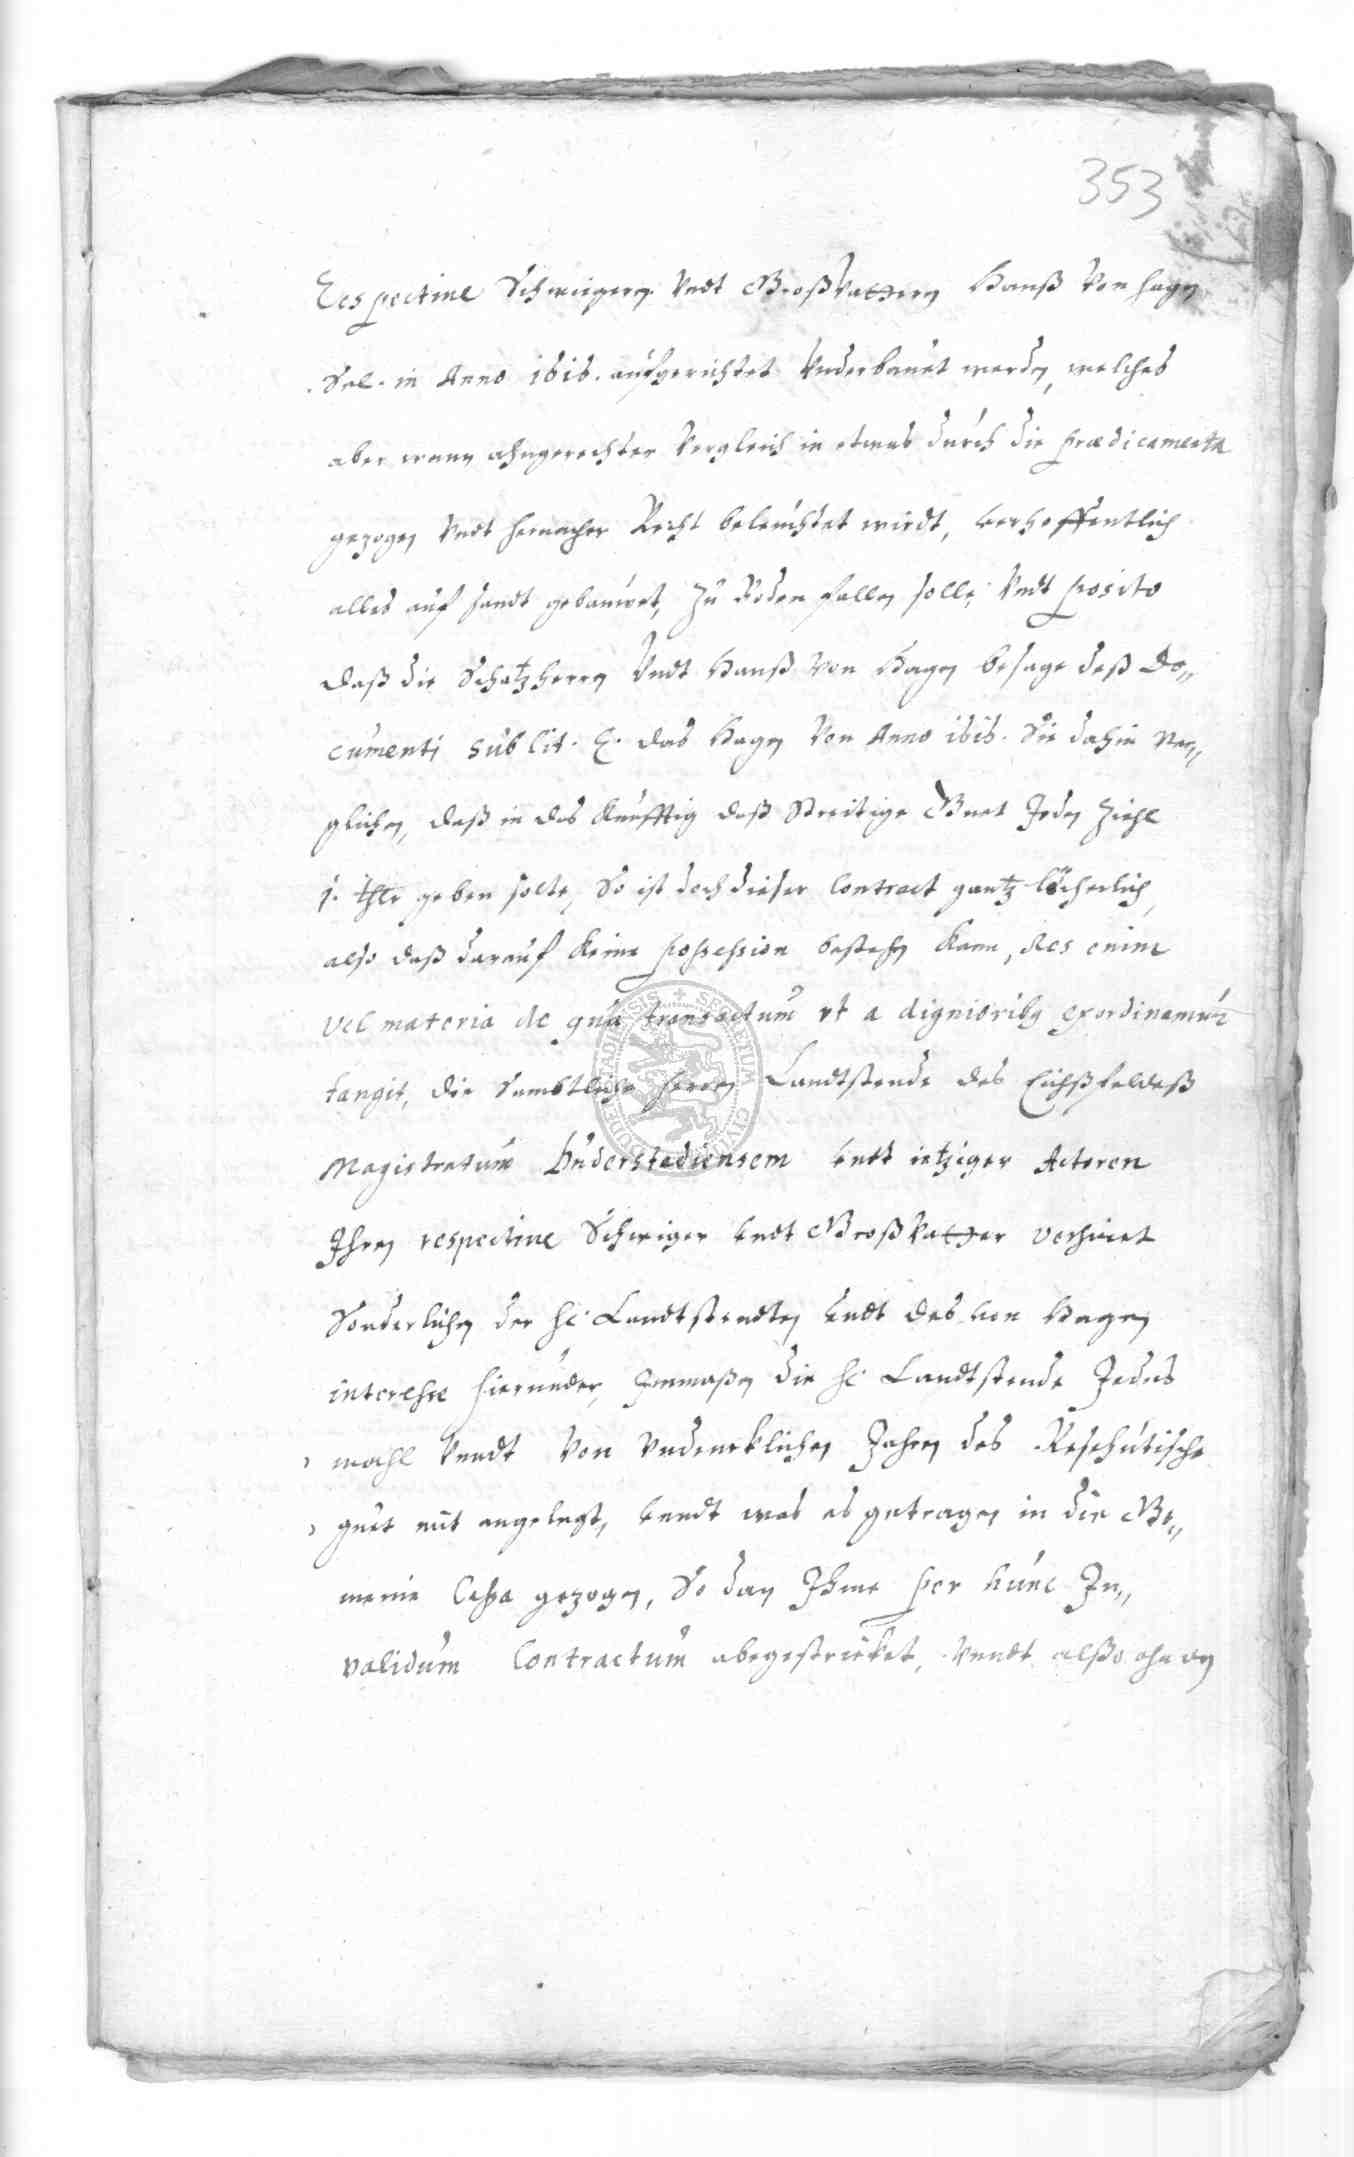 353
Respective Schwigern Vndt Großvattern Hanß Von Hagen
Sel. in Anno 1616. aufgerichtet Vnderbauet worden, welches
aber wann ahngerechter Vergleich in etwas durch die prædicamenta
gezogen Vndt hernacher Recht beleuchtet wirdt, verhoffentlich
alles auf sandt gebauwet, Zu Boden fallen solle, Vndt posito
daß die Schatzherrn Vndt Hanß Von Hagen besage deß Do„
cumenti sub lit. E. das Hagen Von Anno 1616. Sie dahin Ver„
glichen, daß in das Künfftig daß Streitige Guet Jeden Ziehl
1. thlr geben solte, So ist doch dieser Contract gantz löcherlich,
also daß darauf Keine possession bestehen Kann, Res enim
vel materia de qua transactum vt a dignioribus exordinamur
tangit, die Sambtliche Herrn Landtstende des Eichßfeldeß
Magistratum Duderstadiensem vndt ietziger Actoren
Ihren respective Schwiger vndt Großvatter
Sonderlichen der H. Landtstendten vndt des von Hagen
interesse hierunder, Immaßen die H. Landtstende Jedes
mahl Vnndt Von Vndencklichen Jahren das Reschütische
guet mit angelegt, vnndt was es getragen in die Ge„
meine Cassa gezogen, So dan Ihme per hunc In„
validum Contractum abgestricket, Vnndt alßo ohn
SIGILLUM SECRETUM CIVITATIS DUDERSTADIENSIS